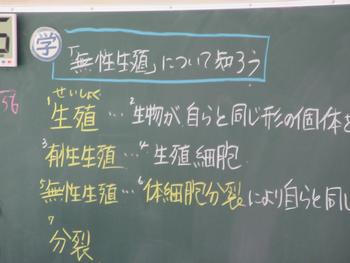 学 「無性生殖」について知ろう
56
せいしょく
1 生殖…2 生物が自らと同じ形の個体を
3 有性生殖…4 生殖細胞
5 無性生殖…6 体細胞分裂により自らと同じ
7
分裂